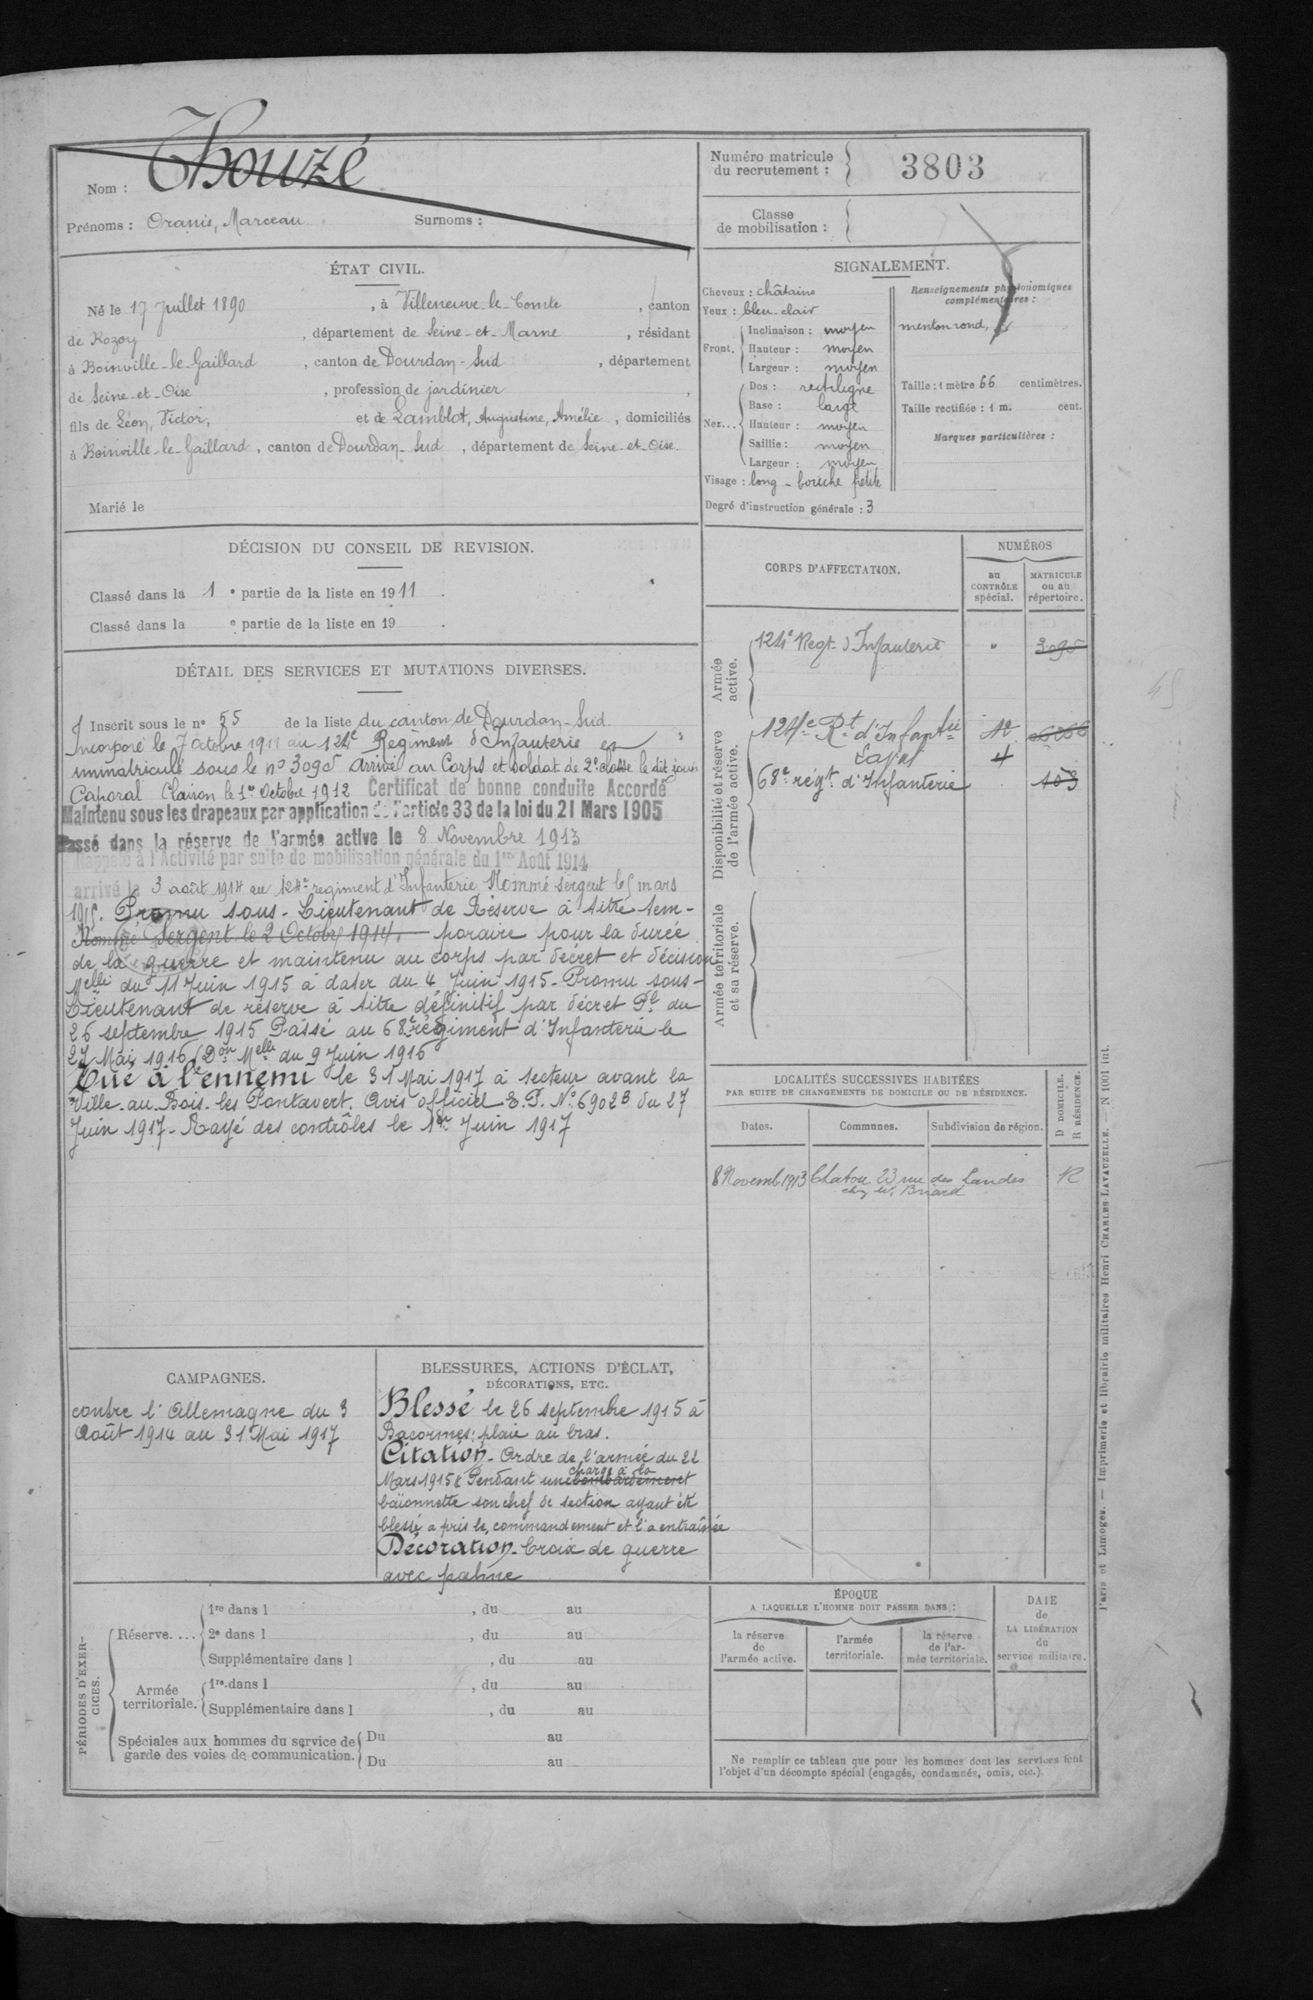 Nom : Thouzé
Prénoms : Oranis, Marceau Surnoms :
Numéro matricule
du recrutement : 3803
Classe
de mobilisation :
ÉTAT CIVIL.
Né le 17 Juillet 1890, à Villeneuve-le-Comte, canton
de Rozoy, département de Seine-et-Marne, résidant
à Boinville-le-Gaillard, canton de Dourdan-Sud, département
de Seine-et-Oise, profession de jardinier,
fils de Léon, Victor, et de Lamblot, Augustine, Amélie, domiciliés
à Boinville-le-Gaillard, canton de Dourdan-Sud, département de Seine-et-Oise.
Marié le
SIGNALEMENT.
Cheveux : châtains
Yeux : bleu-clair
Front. Inclinaison : moyen
Hauteur : moyen
Largeur : moyen
Nez... Dos : rectiligne
Base : large
Hauteur : moyen
Saillie : moyen
Largeur : moyen
Visage : long - bouche petite
Degré d'instruction générale : 3
Renseignements physionomiques
complémentaires :
menton rond,
Taille : 1 mètre 66 centimètres.
Taille rectifiée : 1 m. cent.
Marques particulières :
DÉCISION DU CONSEIL DE REVISION.
Classé dans la 1e partie de la liste en 1911.
Classé dans la e partie de la liste en 19 .
DÉTAIL DES SERVICES ET MUTATIONS DIVERSES.
Inscrit sous le no 55 de la liste du canton de Dourdan-Sud
Incorporé le 7 Octobre 1911 au 124e Régiment d'Infanterie
immatriculé sous le no 3095 arrivé au Corps et soldat de 2e classe le dit jour
Caporal Clairon le 1er Octobre 1912 Certificat de bonne conduite Accordé
Maintenu sous les drapeaux par application de l'article 33 de la loi du 21 Mars 1905
Passé dans la réserve de l'armée active le 8 Novembre 1913
Rappelé à l'Activité par suite de mobilisation générale du 1er Août 1914
arrivé le 3 août 1914 au 124e regiment d'Infanterie Nommé sergent le 5 mars
1915. Promu sous-Lieutenant de Réserve à titre tem-
Nommé Sergent le 2 Octobre 1914. poraire pour la durée
de la guerre et maintenu au corps par décret et décision
Melle du 11 Juin 1915 à dater du 4 Juin 1915 - Promu sous-
Lieutenant de réserve à titre définitif par décret Pl du
26 septembre 1915 Passé au 68e régiment d'Infanterie le
27 Mai 1916 (Don Melle du 9 Juin 1916
Tué à l'ennemi le 31 Mai 1917 à secteur avant la
Ville-au-Bois-les Pontavert. Avis officiel E.P. No 6902B du 27
Juin 1917 - Rayé des contrôles le 1er Juin 1917
CORPS D'AFFECTATION.
NUMÉROS
au
CONTRÔLE
spécial.
MATRICULE
ou au
répertoire.
Armée
active.
124e Regt d'Infanterie " 3095
Disponibilité et réserve
de l'armée active.
124e Rt d'Infantie
Laval
68e régt d'Infanterie 103
Armée territoriale
et sa réserve.
LOCALITÉS SUCCESSIVES HABITÉES
PAR SUITE DE CHANGEMENTS DE DOMICILE OU DE RÉSIDENCE.
Dates. Communes. Subdivision de région.
D DOMICILE.
R RÉSIDENCE.
8 Novemb 1913 Chatou 23 rue des Landes R
chez Mr Briard
CAMPAGNES.
contre l'Allemagne du 3
Août 1914 au 31 Mai 1917
BLESSURES, ACTIONS D'ÉCLAT,
DÉCORATIONS, ETC.
Blessé le 26 septembre 1915 à
Baconnes : plaie au bras.
Citation - Ordre de l'armée du 22
charge à la
Mars 1915 Pendant une bombardement
baïonnette son chef de section ayant été
blessé a pris le commandement et l'a entraînée
Décoration - Croix de guerre
avec palme
PÉRIODES D'EXER-
CICES.
Réserve.... 1re dans l , du au
2e dans l , du au
Supplémentaire dans l , du au
Armée
territoriale. 1re dans l , du au
Supplémentaire dans l , du au
Spéciales aux hommes du service de
garde des voies de communication. Du au
Du au
ÉPOQUE
A LAQUELLE L'HOMME DOIT PASSER DANS :
la réserve
de
l'armée active.
l'armée
territoriale.
la réserve
de l'ar-
mée territoriale.
DATE
de
LA LIBÉRATION
du
service militaire.
Ne remplir ce tableau que pour les hommes dont les services font
l'objet d'un décompte spécial (engagés, condamnés, omis, etc.)
Paris et Limoges. — Imprimerie et librairie militaires Henri CHARLES-LAVAUZELLE. — N 1001 int.